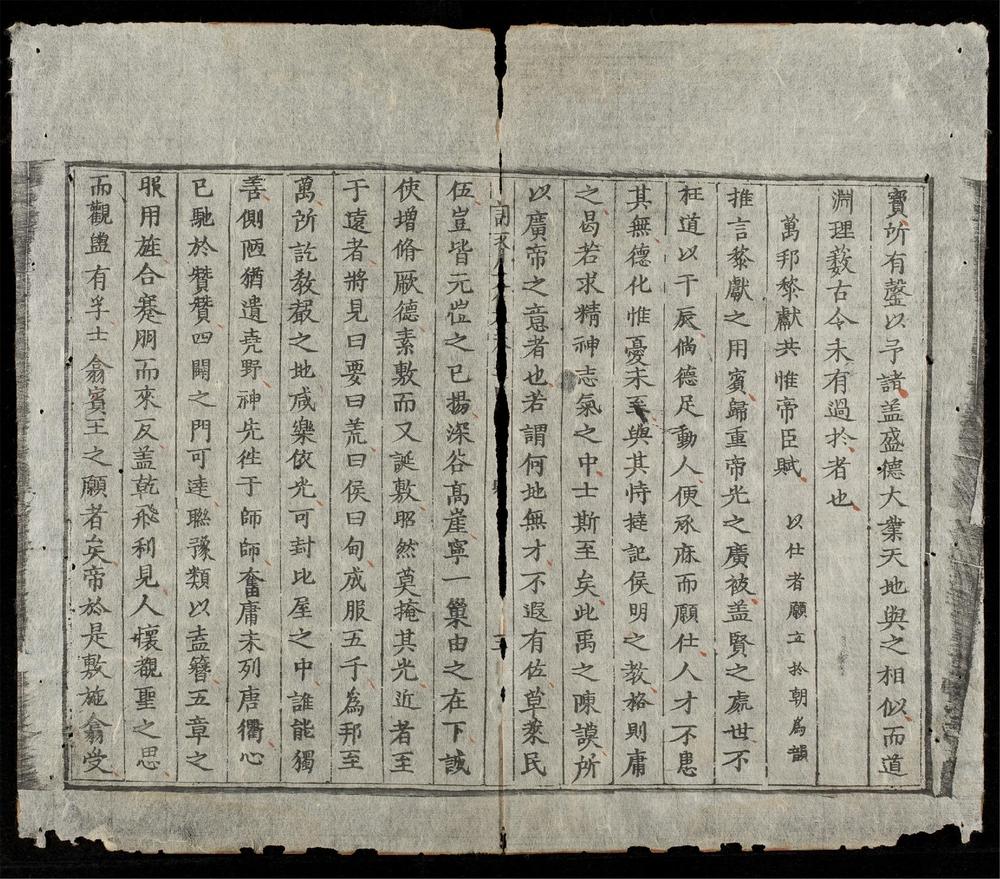 寶所有罄以予諸盖盛德大業天地與之相似而道
淵理藪古今未有過於者也
萬邦黎獻共惟帝臣賦 以仕者願立於朝爲韻
推言黎獻之用賓歸重帝光之廣被盖賢之處世不
枉道以干辰倘德足動人便承庥而願仕人才不患
其無德化惟憂未至與其恃撻記侯明之教格則庸
之曷若求精神志氣之中士斯至矣此禹之陳謨所
以廣帝之意者也若謂何地無才不遐有佐草萊民
伍豈皆元愷之已揚深谷高崖寧一巢由之在下誠
使增脩厥德素敷而又誕敷昭然莫掩其光近者至
于遠者將見曰要曰荒曰侯曰甸成服五千爲邦至
萬所訖教聲之地咸樂依光可封比屋之中誰能獨
善側陋猶遺堯野神先徃于師師奮庸未列唐衢心
已馳於贊贊四闢之門可達聮豫類以盍簪五章之
服用旌合蹇朋而來反盖乾飛利見人懷觀聖之思
而觀盥有孚士翕賓王之願者矣帝於是敷施翕受